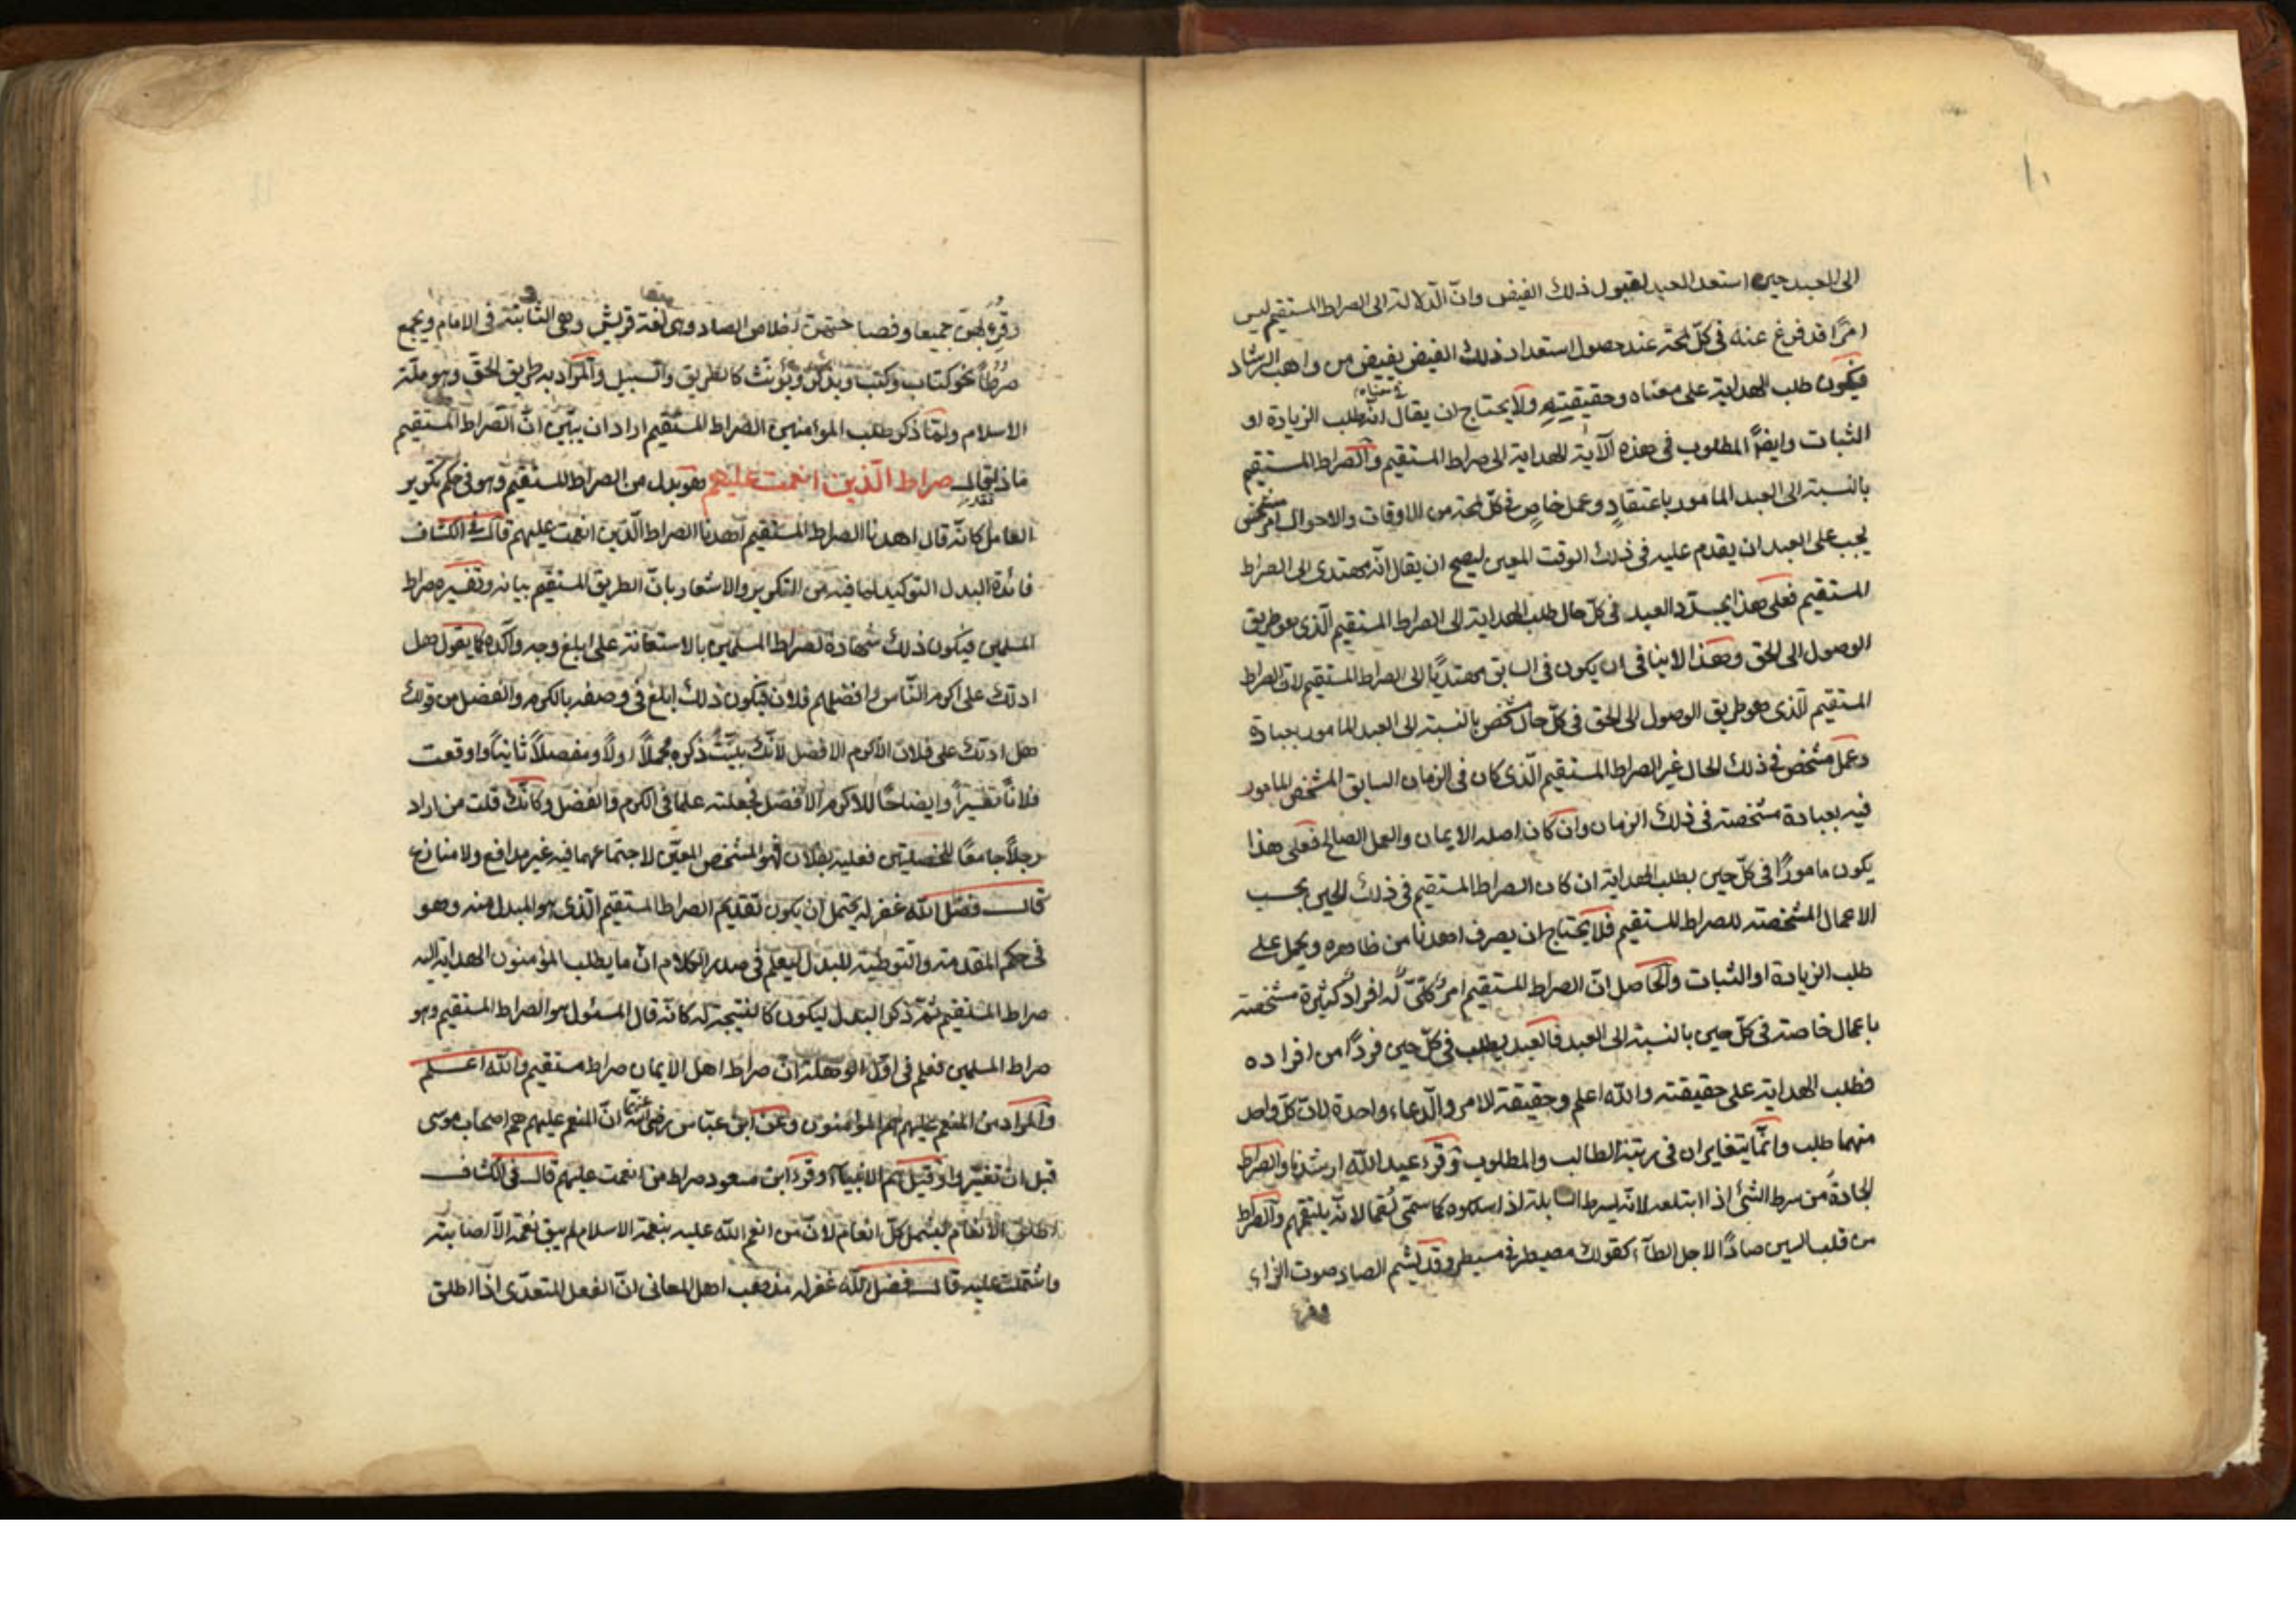 ١٠
الى العبد حين استعد العبد لقبول ذلك الفيض وانّ الدّلالة الى الصراط المستقيم ليس
امرًا قد فرغ عنه فى كلّ لمحة عند حصول استعداد ذلك الفيض يفيض من واهب الرشاد
فيكون طلب الهداية على معناه وحقيقيته ولا يحتاج ان يقال انه طلب الزيادة او
الثبات وايضًا المطلوب فى هذه الآية الهداية الى صراط المستقيم والصراط المستقيم
بالنسبة الى العبد المامور باعتقادٍ وعمل خاصٍ فى كلّ لمحة من الاوقات والاحوال امر مشخص
يجب على العبد ان يقدم عليه فى ذلك الوقت المعين ليصح ان يقال انّه مهتدى الى الصراط
المستقيم فعلى هذا يجدّد العبد فى كلّ حال طلب الهداية الى الصراط المستقيم الّذى هو طريق
الوصول الى الحق وهذا لا ينافى ان يكون فى السابق مهتديًا الى الصراط المستقيم لانّ الصراط
المستقيم الّذى هو طريق الوصول الى الحق فى كلّ حال مشخص بالنسبة الى العبد المامور بعبادة
وعمل مشخص فى ذلك الحال غير الصراط المستقيم الّذى كان فى الزمان السابق المشخص المامور
فيه بعبادة مشخصة فى ذلك الزمان وان كان اصله الايمان والعمل الصالح فعلى هذا
يكون مامورًا فى كلّ حين بطلب الهداية ان كان الصراط المستقيم فى ذلك الحين بحسب
الاعمال المشخصة للصراط المستقيم فلا يحتاج ان يصرف اهدنا من ظاهره ويحمل على
طلب الزيادة او الثبات والحاصل انّ الصراط المستقيم امرٌ كلّىّ له افرادٌ كثيرةٌ مشخصة
باعمال خاصة فى كلّ حين بالنسبة الى العبد فالعبد يطلب فى كلّ حين فردًا من افراده
فطلب الهداية على حقيقته والله اعلم وحقيقة الامر والدّعاء واحدة لانّ كلّ واحد
منهما طلب وانّما يتغايران فى رتبة الطالب والمطلوب وقرء عبد الله ارشدنا والصراط
الجادة من سرط الشئ اذا ابتلعه لانّه يسرط السابلة اذا سلكوه كما سمّى لقما لانّه يلتقمهم والصراط
من قلب السين صادًا لاجل الطآء كقولك مصيطر فى مسيطر وقد يشم الصاد صوت الزاى
وقرء
وقرء بهنّ جميعا وفصا حتهنّ اخلاص الصاد وهى لغة قريش وهى الثابتة فى الامام ويجمع
صرطًا نحو كتاب وكتب ويذكر ويؤنث كالطريق والسبيل والمراد به طريق الحقّ وهو ملّة
الاسلام ولمّا ذكر طلب المؤمنين الصراط المستقيم اراد ان يبيّن انّ الصراط المستقيم
ماذا فقال صراط الّذين انعمت عليهم وهو بدل من الصراط المستقيم وهو فى حكم تكوير
العامل كانّه قال اهدنا الصراط المستقيم اهدنا الصراط الّذين انعمت عليهم قال فى الكشاف
فائدة البدل التوكيد لما فيه من التكرير والاشعار بانّ الطريق المستقيم بيانه وتفسيره صراط
المسلمين فيكون ذلك شهادة لصراط المسلمين بالاستعانة على ابلغ وجه وآكده كما يقول هل
ادلّك على اكرم النّاس وافضلهم فلان فيكون ذلك ابلغ فى وصفه بالكرم والفضل من قولك
هل ادلّك على فلان الاكرم الافضل لانّك بيّنت ذكره مجملًا اولًا ومفصلًا ثانيًا واوقعت
فلانًا تفسيرًا وايضاحًا للاكرم الافضل فجعلته علما فى الكرم والفضل وكانّك قلت من اراد
رجلًا جامعًا للخصلتين فعليه بفلان فهو المشخص المعيّن لاجتماعهما فيه غير مدافع ولا منازع
قال فضل الله غفر له يحتمل ان يكون تقديم الصراط المستقيم الّذى هو المبدل منه وهو
فى حكم المقدمة والتوطية للبدل ليعلم فى صدر الكلام انّ ما يطلب المؤمنون الهداية اليه
صراط المستقيم ثمّ ذكر البدل ليكون كالنتيجة له كانّه قال المسئول هو الصراط المستقيم وهو
صراط المسلمين فعلم فى اوّل الوهلة انّ صراط اهل الايمان صراط مستقيم والله اعلم
والمراد من المنعم عليهم هم المؤمنون وعن ابن عبّاس رضى الله عنهما انّ المنعم عليهم هم اصحاب موسى
قبل ان تغيّروا وقيل هم الانبياء وقرء ابن مسعود صراط من انعمت عليهم قال فى الكشاف
اطلق الانعام ليشمل كلّ انعام لانّ من انعم الله عليه بنعمة الاسلام لم يبق نعمة الّا اصابته
واشتملت عليه قال فضل الله غفر له مذهب اهل المعانى انّ الفعل المتعدّى اذا اطلق